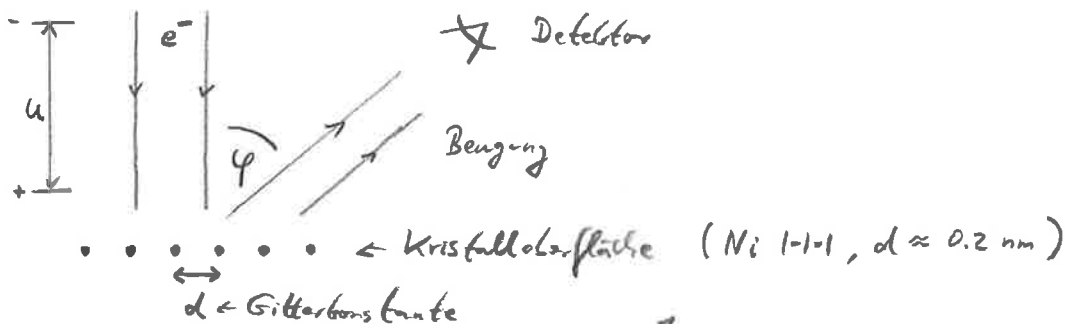 - e⁻ Detektor
u
φ Beugung
+
← Kristalloberfläche (Ni 1-1-1, d ≈ 0.2 nm)
d ← Gitterkonstante